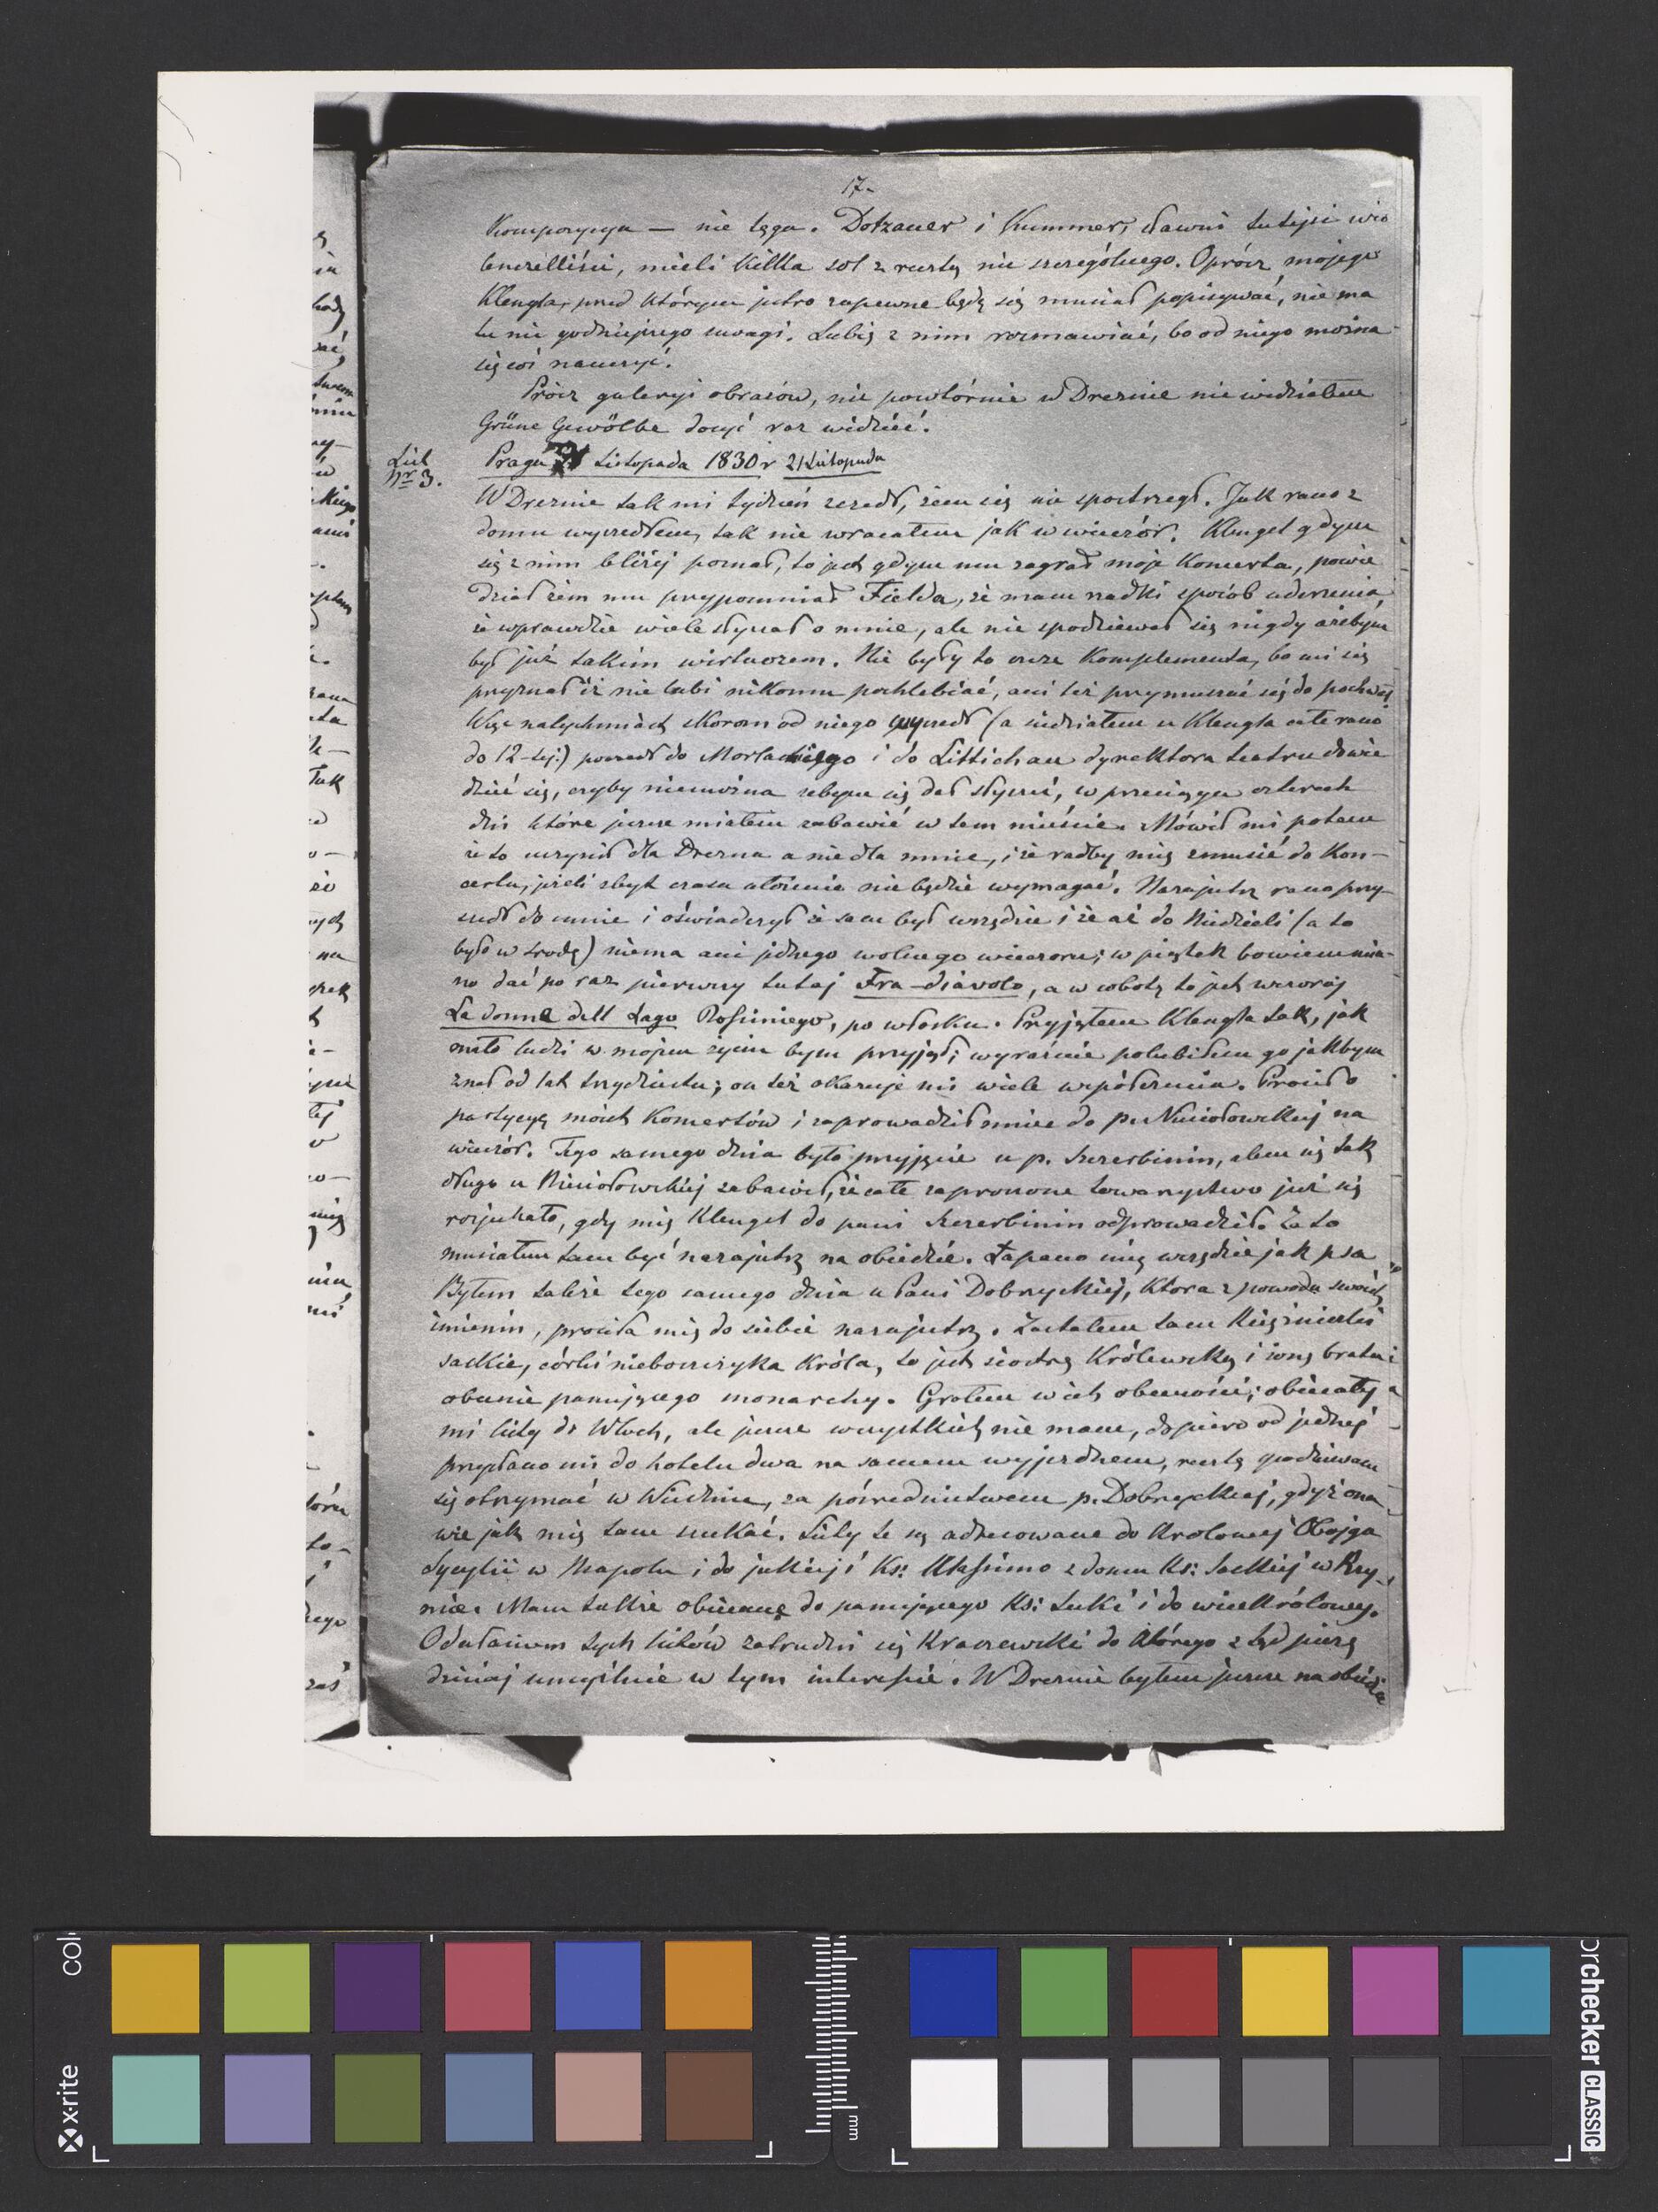 17.
Kompozycya — nie tęga. Dotzauer i Kummer, sławni tutejsi wio
lenczelliści, mieli kilka sol zresztą nic szczególnego. Oprócz mojego
Klengla, przed którym jutro zapewne będę się musiał popisywać, nie ma
tu nic godniejszego uwagi. Lubię z nim rozmawiać, bo od niego można
się coś nauczyć.
Prócz galeryi obrazów, nic powtórnie w Dreznie nie widziałem
Grüne Gewölbe dosyć raz widzieć.
List
Nr 3.
Praga Listopada 1830 r 21 Listopada
W Dreznie tak mi tydzień zeszedł, żem się nie spostrzegł. Jak rano z
domu wyszedłem, tak nie wracałem jak w wieczór. Klengel gdym
się z nim bliżej poznał, to jest gdym mu zagrał moje Koncerta, powie
dział żem mu przypomniał Fielda, że mam rzadki sposób uderzenia
że wprawdzie wiele słyszał o mnie, ale nie spodziewał się nigdy ażebym
był już takim wirtuozem. Nie były to czcze Komplementa, bo mi się
przyznał iż nie lubi nikomu pochlebiać, ani też przymuszać się do pochwał
Więc natychmiast skorom od niego wyszedł (a siedziałem u Klengla całe rano
do 12-tej:) poszedł do Morlackiego i do Littichau dyrektora teatru dowie
dzieć się, czyby niemożna żebym się dał słyszeć, w przeciągu czterech
dni które jeszcze miałem zabawić w tem mieście. Mówił mi potem
że to uczynił dla Drezna a nie dla mnie, i że radby mię zmusić do Kon-
certu, jeżeli zbyt czasu ułożenie nie będzie wymagać. Nazajutrz rano przy-
szedł do mnie i oświadczył że sam był wszędzie i że aż do Niedzieli (a to
było w środę) niema ani jednego wolnego wieczoru; w piątek bowiem mia-
no dać po raz pierwszy tutaj Fra-diavolo, a w sobotę to jest wczoraj
La donna dell Lago Rossiniego, po włosku. Przyjąłem Klengla tak, jak
mało ludzi w mojem życiu bym przyjął; wyraźnie polubiłem go jakbym
znał od lat trzydziestu; on też okazuje mi wiele współczucia. Prosił o
partycyę moich Koncertów i zaprowadził mnie do p. Niesiołowskiej na
wieczór. Tego samego dnia było przyjęcie u p. Szczerbinin, alem się tak
długo u Niesiołowskiej zabawił, że całe zaproszone towarzystwo już się
rozjechało, gdy mię Klengel do pani Szczerbinin odprowadził. Za to
musiałem tam być nazajutrz na obiedzie. Łapano mię wszędzie jak psa
Byłem także tego samego dnia u Pani Dobrzyckiej, która z powodu swoich
imienin, prosiła mię do siebie nazajutrz. Zastałem tam Księżniczki
saskie, córki nieboszczyka Króla, to jest siostrę Królewską i żonę brata
obecnie panującego monarchy. Grałem w ich obecności; obiecały
mi listy do Włoch, ale jeszcze wszystkich nie mam, dopiero od jednej
przysłano mi do hotelu dwa na samem wyjezdnem, resztę spodziewam
się otrzymać w Wiedniu, za pośrednictwem p. Dobrzyckiej, gdyż ona
wie jak mię tam szukać. Listy te są adresowane do Królowej Obojga
Sycylii w Neapolu i do jakiejś Ks: Massimo z domu Ks: Saskiej w Rzy-
mie. Mam także obiecane do panującego Ks: Luki i do wicekrólowej.
Odesłaniem tych listów zatrudni się Kraszewski do którego ztąd piszę
dzisiaj umyślnie w tym interesie. W Dreznie byłem jeszcze na obiedzie